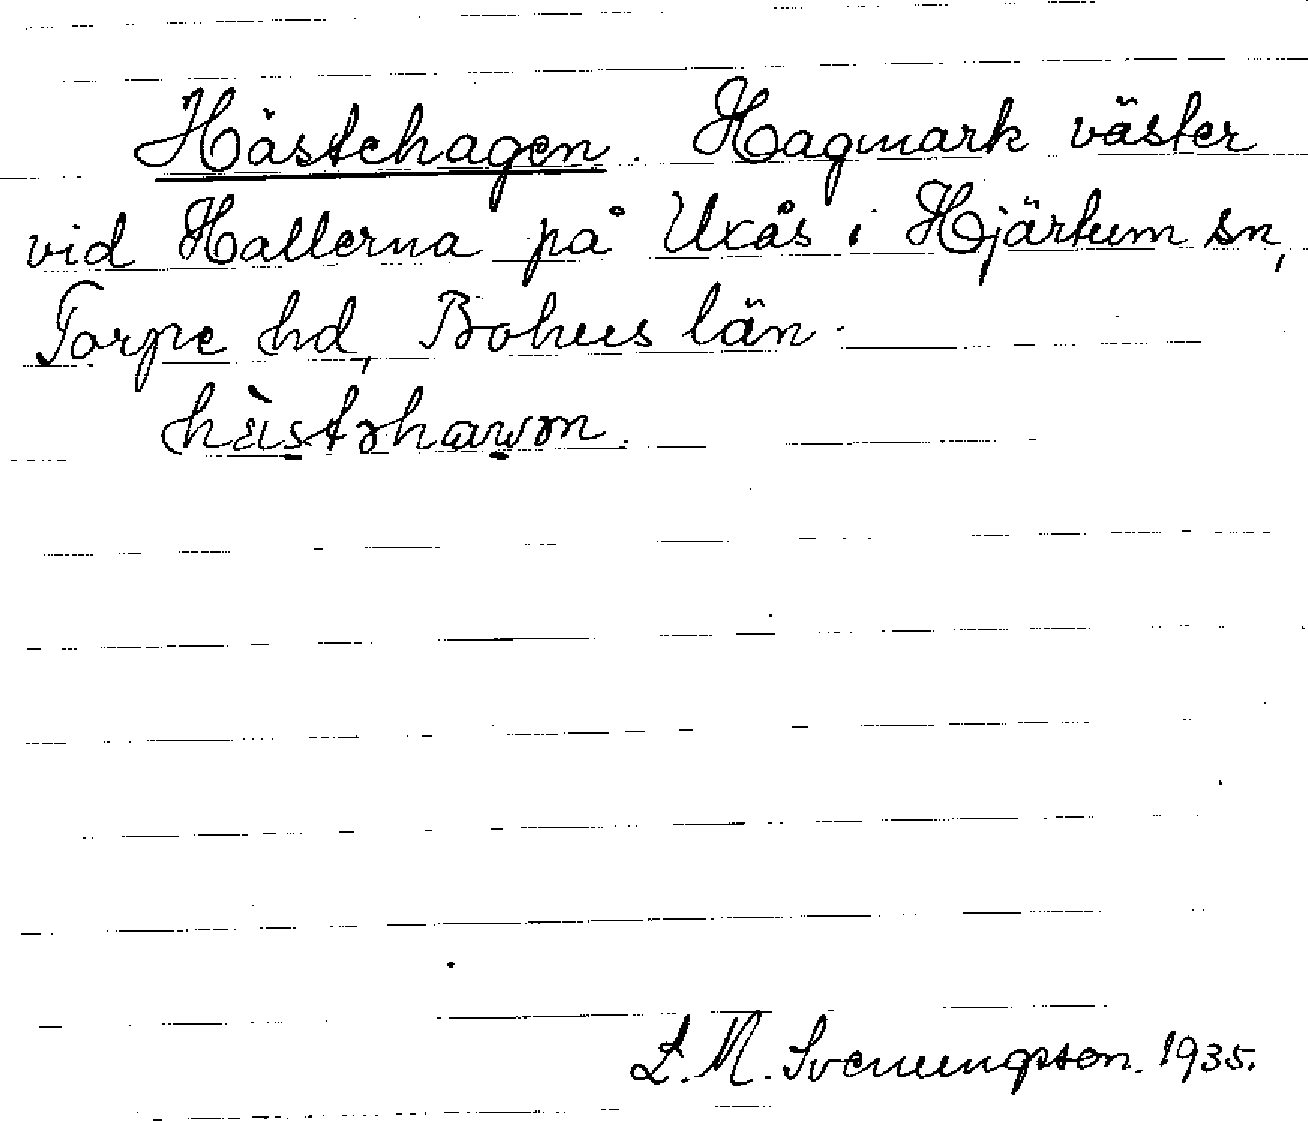 Hästehagen. Hagmark väster
vid Hallerna på Uxås i Hjärtum sn,
Torpe hd, Bohus län.
hàstəhawən.
L. M. Svenungsson. 1935.